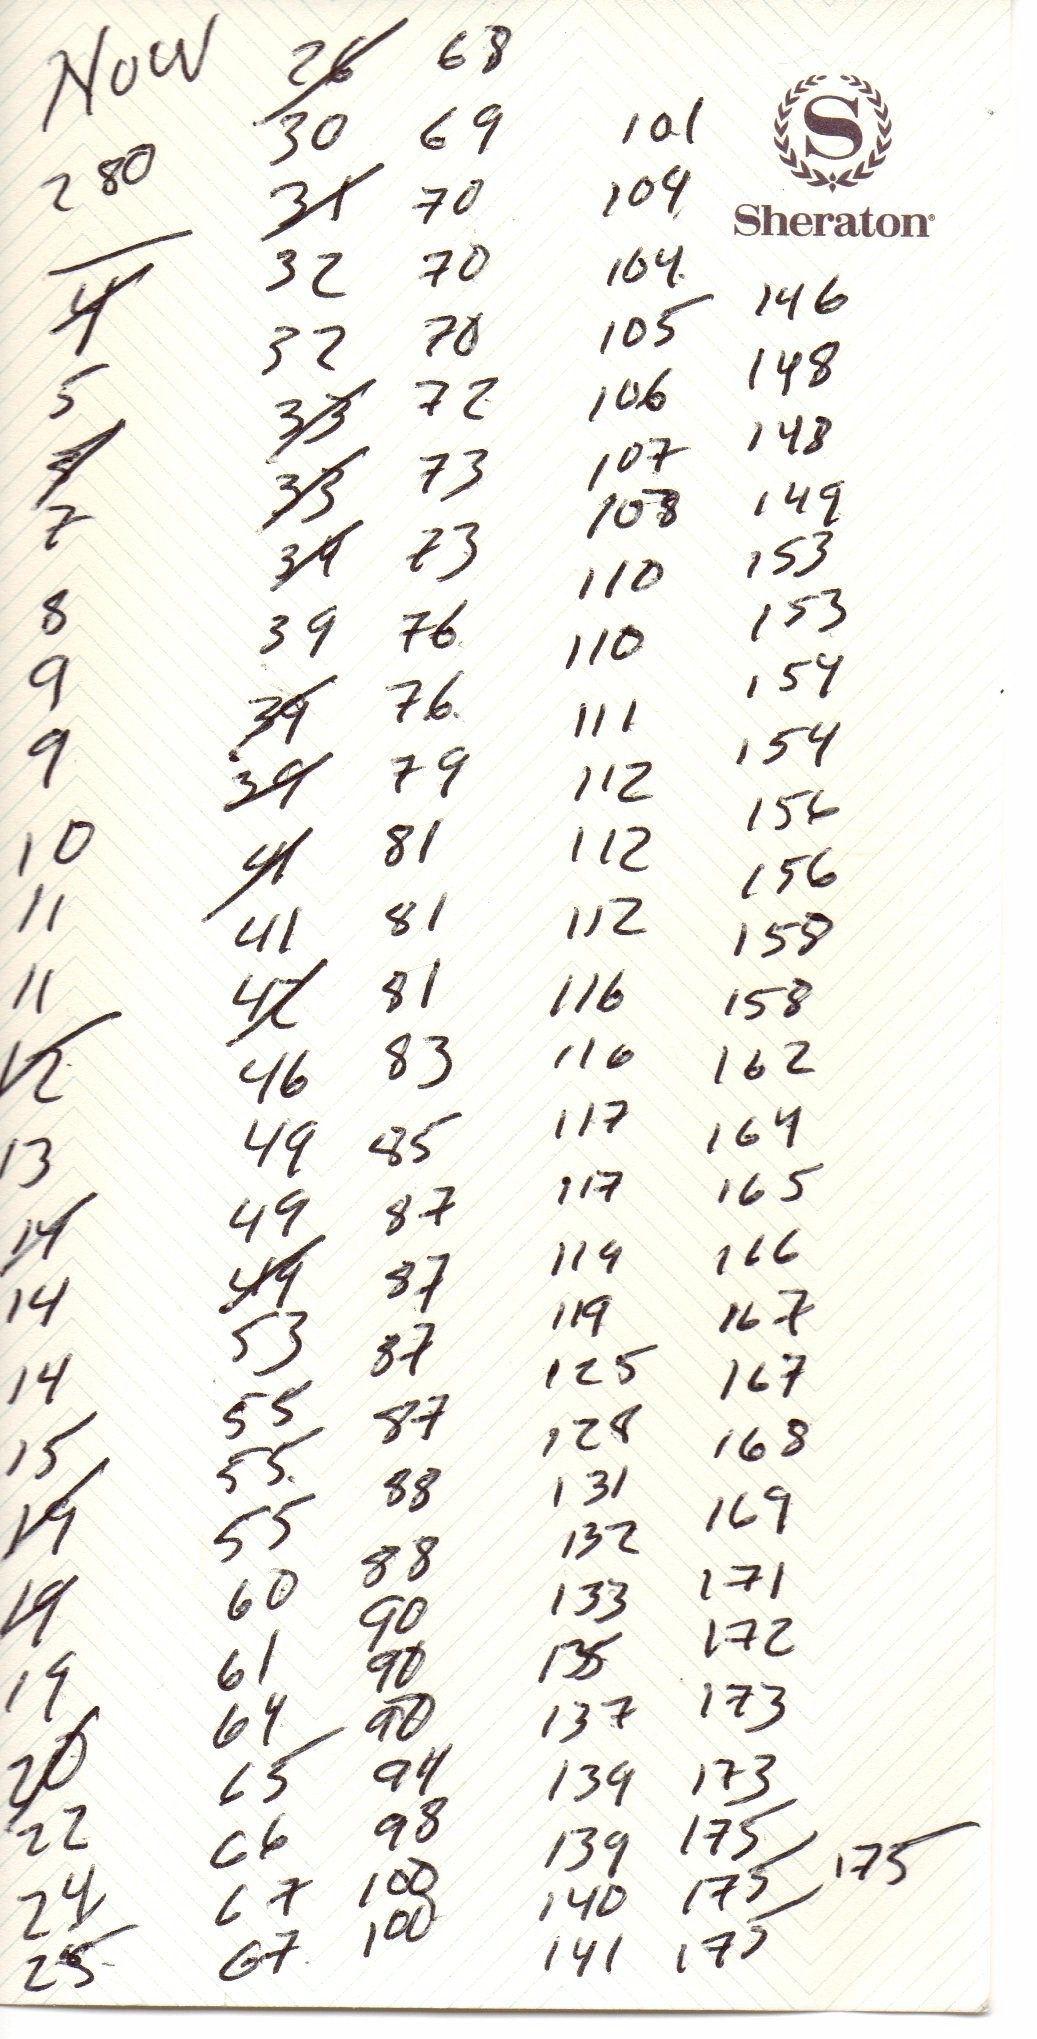 Now
280
4
5
7
8
9
9
10
11
11
12
13
14
14
14
15
19
19
19
20
22
24
25
26
30
31
32
32
33
33
34
39
39
39
41
41
42
46
49
49
49
53
55
55
55
60
61
64
65
66
67
67
68
69
70
70
70
72
73
73
76
76
79
81
81
81
83
85
87
87
87
87
88
88
90
90
90
94
98
100
100
101
104
104
105
106
107
108
110
110
111
112
112
112
116
116
117
117
119
119
125
128
131
132
133
135
137
139
139
140
141
S
Sheraton
146
148
148
149
153
153
154
154
156
156
158
158
162
164
165
166
167
167
168
169
171
172
173
173
175
175
175
175